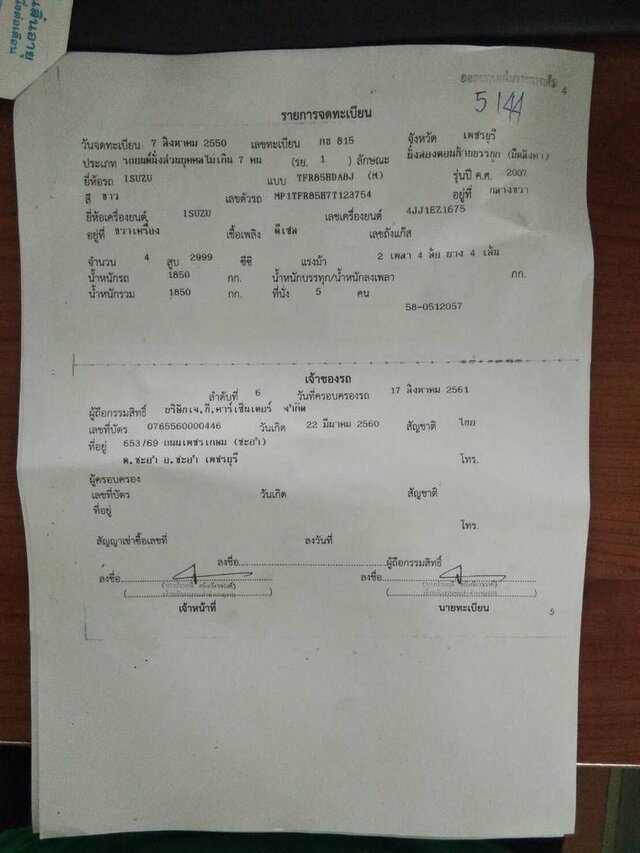 5144
รายการจดทะเบียน
วันจดทะเบียน 7 สิงหาคม 2550 เลขทะเบียน กย 815 จังหวัด เพชรบุรี
ประเภท รถยนต์นั่งส่วนบุคคลไม่เกิน 7 คน (รย. 1 ) ลักษณะ นั่งสองตอนท้ายบรรทุก (มีหลังคา)
ยี่ห้อรถ ISUZU แบบ TFR85HDA8J (M) รุ่นปี ค.ศ. 2007
สี ขาว เลขตัวรถ MP1TFR85H7T123754 อยู่ที่ กลางขวา
ยี่ห้อเครื่องยนต์ ISUZU เลขเครื่องยนต์ 4JJ1EZ1675
อยู่ที่ ขวาเครื่อง เชื้อเพลิง ดีเซล เลขถังแก๊ส
จำนวน 4 สูบ 2999 ซีซี แรงม้า 2 เพลา 4 ล้อ ยาง 4 เส้น
น้ำหนักรถ 1850 กก. น้ำหนักบรรทุก/น้ำหนักลงเพลา กก.
น้ำหนักรวม 1850 กก. ที่นั่ง 5 คน
58-0512057
เจ้าของรถ
ลำดับที่ 6 วันที่ครอบครองรถ 17 สิงหาคม 2561
ผู้ถือกรรมสิทธิ์ บริษัทเจ.ที.คาร์เซ็นเตอร์ จำกัด
เลขที่บัตร 0765560000446 วันเกิด 22 มีนาคม 2560 สัญชาติ ไทย
ที่อยู่ 653/69 ถนนเพชรเกษม (ชะอำ)
ต.ชะอำ อ.ชะอำ เพชรบุรี โทร.
ผู้ครอบครอง
เลขที่บัตร วันเกิด สัญชาติ
ที่อยู่
โทร.
สัญญาเช่าซื้อเลขที่ ลงวันที่
ลงชื่อ ผู้ถือกรรมสิทธิ์
ลงชื่อ ลงชื่อ
เจ้าหน้าที่ นายทะเบียน
5